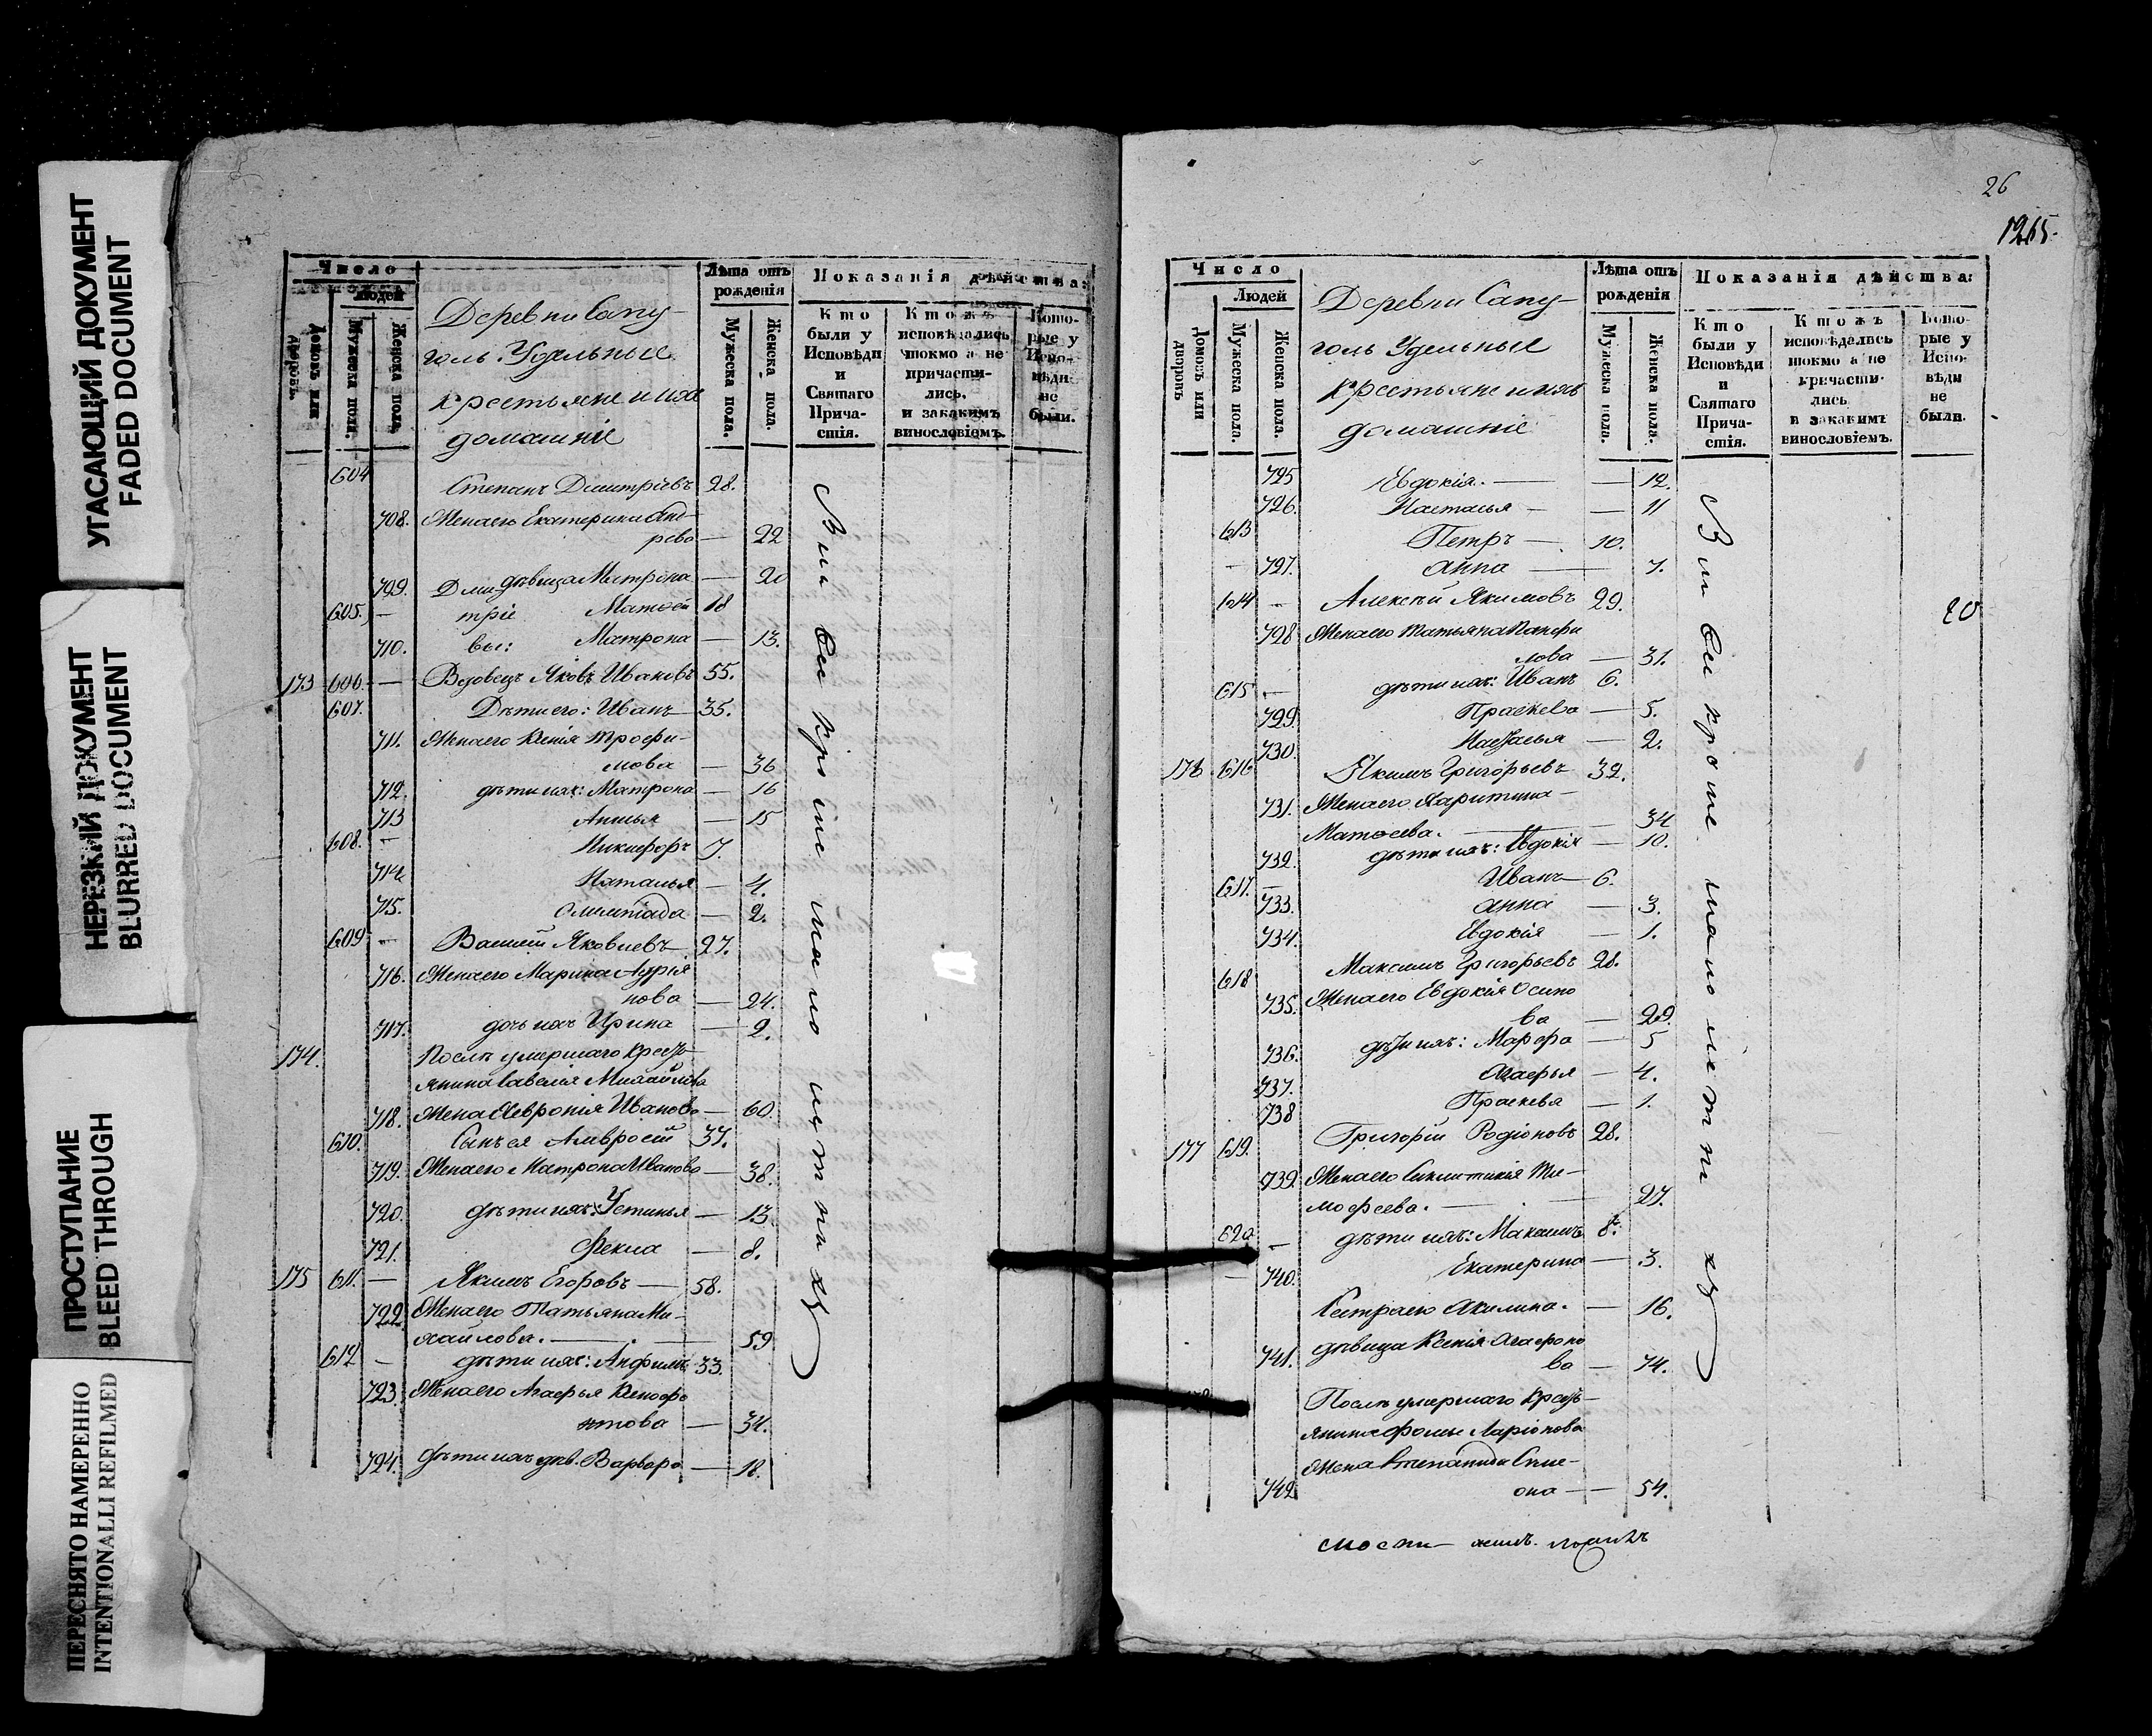 УГАСАЮЩИЙ ДОКУМЕНТ
FADED DOCUMENT
НЕРЕЗКИЙ ДОКУМЕНТ
BLURRED DOCUMENT
ПРОСТУПАНИЕ
BLEED THROUGH
ПЕРЕСНЯТО НАМЕРЕННО
INTENTIONALLI REFILMED
Число
Людей
Домовъ или дворовъ.
Мужеска пола.
Женска пола.
Деревни Сапу-
голь Удельные
крестьяне и ихъ
домашніе
Лѣта отъ рожденія
Мужеска пола.
Женска пола.
Показанія дѣйства:
Кто были у Исповѣди и Святаго Причастія.
Ктожъ исповѣдались токмо а не причастились, и закакимъ винословіемъ.
Которые у Исповѣди не были.
604 Степанъ Димитріевъ 28.
708. Жена его Екатерина Анд-
рева — 22
709. девица Матрона — 20
605. — Дми- трі Матвей 18
710. вы: Матрона — 13.
173 606. — Вдовецъ Яковъ Ивановъ 55.
607. Дѣти его: Иванъ 35.
711. Жена его Ксенія Трофи-
мова — 36
712. дѣти ихъ: Матрона — 16
713 Анисья — 15
608. — Никифоръ 7.
714 Наталья — 4.
715. Олимпіада — 2.
609 — Василій Яковлевъ 27.
716. Жена его Марина Андрія
нова — 24.
717. дочь ихъ Ирина — 2.
174. Послѣ умершаго кресть-
янина Савелія Михайлова
718. Жена Февронія Иванова — 60.
610. Сынъ ея Амвросій 37.
719. Жена его Матрона Иванова — 38.
720. дѣти ихъ: Устинья — 13
721. Фекла — 8.
175 611. — Якимъ Егоровъ — 58.
722. Жена его Татьяна Ми-
хайлова. — 59
612 — дѣти ихъ: Анфимъ 33.
723. Жена его Агафья Ксенофо
нтова — 34.
724. Дѣти ихъ дѣв. Варвара — 18.
26
1265.
Число
Людей
Домовъ или дворовъ
Мужеска пола.
Женска пола.
Деревни Сапу-
голь Удельные
крестьяне и ихъ
домашніе
Лѣта отъ рожденія
Мужеска пола.
Женска пола.
Показанія дѣйства:
Кто были у Исповѣди и Святаго Причастія.
Ктожъ исповѣдались токмо а не причастились и закакимъ винословіемъ.
Которые у Исповѣди не были.
725 Евдокія. — — 12.
726. Настасья — — 11
613 Петръ — 10.
727. Анна — 7.
614 — Алексѣй Якимовъ 29.
728 Жена его Татьяна Панфи
лова — 31.
615 — дѣти ихъ: Иванъ 6.
729. Праскева — 5.
730. Настасья — 2.
176 616 Якимъ Григорьевъ 32.
731. Жена его Харитина
Матвеева. — 34
732. дѣти ихъ: Евдокія — 10.
617. — Иванъ — 6.
733. Анна — 3.
734. Евдокія — 1.
618 Максимъ Григорьевъ 28.
735. Жена его Евдокія Осипо
ва — 29.
736. дѣти ихъ: Марфа — 5
737. Агафья — 4.
738 Праскевья — 1.
177 619. Григорій Родіоновъ 28.
739. Жена его Ти-
мофеева. — 27.
620 — дѣти ихъ: Максимъ 8.
740. Екатерина — 3.
Сестра его Акилина. — 16.
741. девица Ксенія Агафоно
ва — 74.
Послѣ умершаго кресть-
янина Фомы Ларіонова
Жена Степанида Симе-
742. она — — 54.